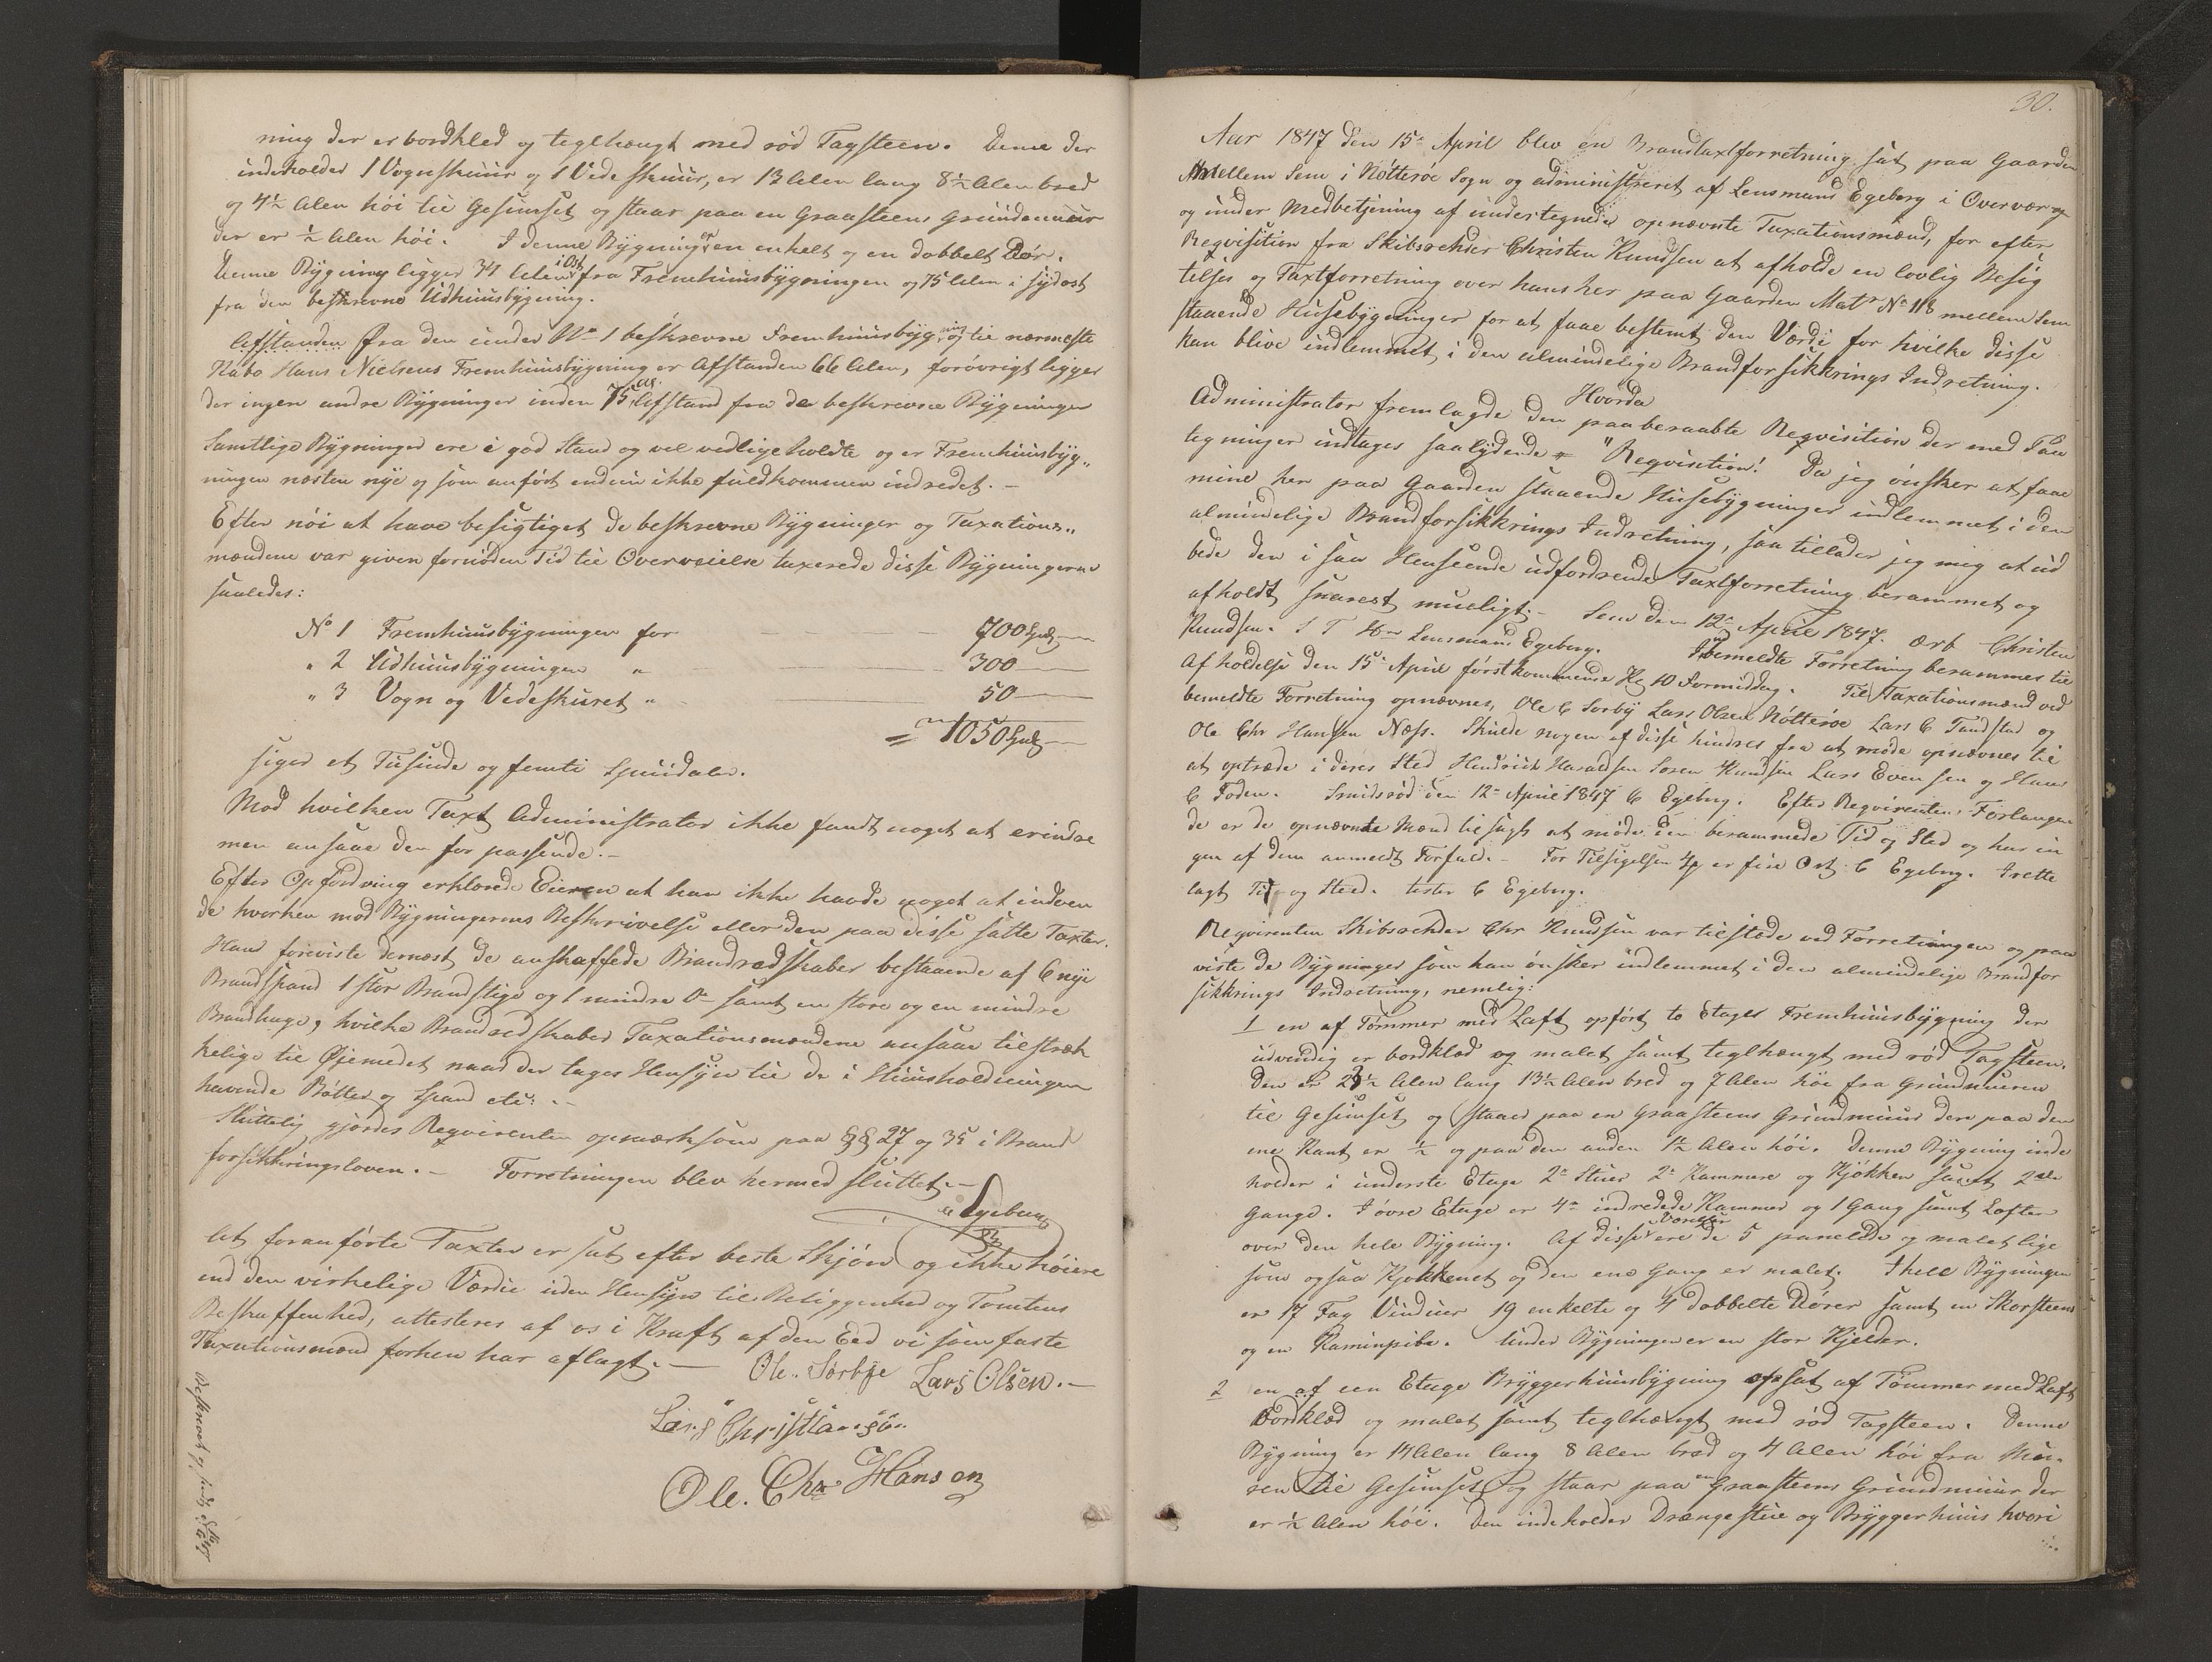 ning der er bordklæd og teglhængt med rød Tagsteen. Denne der
indeholder 1 Vognskuur og 1 Vedeskuur, er 13 Alen lang 8½ Alen bred
og 4½ Alen høi til Gesimset og staar paa en Graasteens Grundemuur
der er ½ Alen høi. I denne Bygning er en enkelt og en dobbelt Dør.
Denne Bygning ligger 34 Alen i Ost fra Fremhuusbygningen og 75 Alen i sydost
fra den beskrevne Udhuusbygning.
Afstanden fra den under No 1 beskrevne Fremhuusbygning og til nærmeste
Nabo Hans Nielsens Fremhuusbygning er Afstanden 66 Alen, forøvrigt ligger
der ingen andre Bygninger inden 75 al. Afstand fra de beskrevne Bygninger
Samtlige Bygninger ere i god Stand og vel vedligeholdte og er Fremhuusbyg„
ningen næsten nye og som anført endnu ikke fuldkommen indredet. –
Efter nøi at have besigtiget de beskrevne Bygninger og Taxations„
mændene var given fornøden Tid til Overveielse taxerede disse Bygningerne
saaledes:
No 1 Fremhuusbygningen for 700 Spd
„ 2 Udhuusbygningen „ 300
„ 3 Vogn og Vedeskuret „ 50
= 1050 Spd
siger et Tusinde og femti Spesidaler.
Mod hvilken Taxt Administrator ikke fandt noget at erindre
men ansaae den for passende. –
Efter Opfordring erklærede Eieren at han ikke havde noget at indven
de hverken mod Bygningernes Beskrivelse eller den paa disse satte Taxter.
Han foreviste dernæst de anskaffede Brandredskaber bestaaende af 6 nye
Brandspand 1 stor Brandstige og 1 mindre Do samt en store og en mindre
Brandhage, hvilke Brandredskaber Taxationsmændene ansaae tilstræk
kelige til Øjemedet naar der tages Hensyn til de i Huusholdningen
havende Bøtter og Spand etc: –
Sluttelig gjordes Reqvirenten opmærksom paa §§ 27 og 35 i Brand
forsikkringsloven. – Forretningen blev hermed sluttet. –
C Egeberg
At foranførte Taxter er sat efter beste Skjøn og ikke høiere
end den virkelige Værdie uden Hensyn til Beliggenhed og Tomtens
Beskaffenhed, attesteres af os i Kraft af den Eed vi som faste
Taxationsmænd forhen har aflagt. –
Ole. Sørbye Lars Olsen. –
Lars Christiansøn
Ole. Chr Hansen
30.
Aar 1847 den 15de April blev en Brandtaxtforretning sat paa Gaarden
Mellem Sem i Nøtterøe Sogn og administreret af Lensmand Egeberg i Overvær og
og under Medbetjening af undertegnede opnævnte Taxationsmænd, for efter
Reqvisition fra Skibsrehder Christen Knudsen at afholde en lovlig Besig
telses og Taxtforretning over hans her paa Gaarden Matr No 118 mellem Sem
staaende Husebygninger for at faae bestemt den Værdi for hvilke disse
kan blive indlemmet i den almindelige Brandforsikkrings Indretning.
Hvorda
Administrator fremlagde den paaberaabte Reqvisition der med Paa
tegninger indtages saalydende "Reqvisition! Da jeg ønsker at faae
mine her paa Gaarden staaende Husebygninger indlemmet i den
almindelige Brandforsikkrings Indretning, saa tillader jeg mig at ud
bede den i saa Henseende udfordrende Taxtforretning berammet og
afholdt snarest mueligt. – Sem den 12te April 1847. ærb Christen
Knudsen. S T Hr Lensmand Egeberg. Ibemeldte Forretning berammes til
Afholdelse den 15de April førstkommende Kl 10 Formiddag. Til Taxationsmænd ved
bemeldte Forretning opnævnes, Ole C Sørby Lars Olsen Nøtterøe Lars C Tandstad og
Ole Chr Hansen Næss. Skulde nogen af disse hindres fra at møde opnævnes til
at optræde i deres Sted Hendrich Haraldsen Søren Knudsen Lars Evensen og Hans
C Foden. Smidsrød den 12te April 1847 C Egeberg. Efter Reqvirentens Forlangen
de er de opnævnte Mænd tilsagt at møde den berammede Tid og Sted og har in
gen af dem anmeldt Forfald. – For Tilsigelsen er fire Ort C Egeberg. Irette
lagt Tid og Sted. tester C Egeberg.
Reqvirenten Skibsrehder Chr Knudsen var tilstæde ved Forretningen og paa
viste de Bygninger som han ønsker indlemmet i den almindelige Brandfor
sikkrings Indretning, nemlig:
1 en af Tømmer med Laft opført to Etages Fremhuusbygning der
udvendig er bordklæd og malet samt teglhængt med rød Tagsteen.
Den er 23½ Alen lang 13½ Alen bred og 7 Alen høi fra Grundmuren
til Gesimset og staaer paa en Graasteens Grundmuur der paa den
ene Kant er ½ og paa den anden 1½ Alen høi. Denne Bygning inde
holder i underste Etage 2de Stuer 2de Kammere og Kjøkken samt 2de
Gange. I øvre Etage er 4re indredede Kammer og 1 Gang samt Loften
over den hele Bygning. Af disse Værelser ere de 5 panelede og malet lige
som ogsaa Kjøkkenet og den ene Gang er malet. I hele Bygningen
er 17 Fag Vinduer 19 enkelte og 4 dobbelte Dører samt en Skorsteens
og en Kaminpibe. Under Bygningen er en stor Kjelder.
2 en af een Etage Bryggerhuusbygning opsat af Tømmer med Laft
bordklæd og malet samt teglhængt med rød Tagsteen. Denne
Bygning er 14 Alen lang 8 Alen bred og 4 Alen høi fra Mu-
ren til Gesimset og staar paa en Graasteens Grundmuur der
er ½ Alen høi. Den indeholder Drængestue og Bryggerhuus hvori